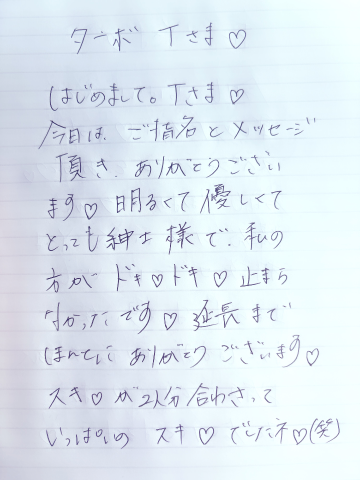 ターボ Tさま♡
はじめまして。Tさま♡
今日は、ご指名とメッセージ
頂き、ありがとうござい
ます♡ 明るくて優しくて
とっても紳士様で、私の
方がドキ♡ドキ♡止まら
なかったです♡ 延長まで
ほんとにありがとうございます♡
スキ♡が2人分合わさって
いっぱいのスキ♡でしたネ♡(笑)